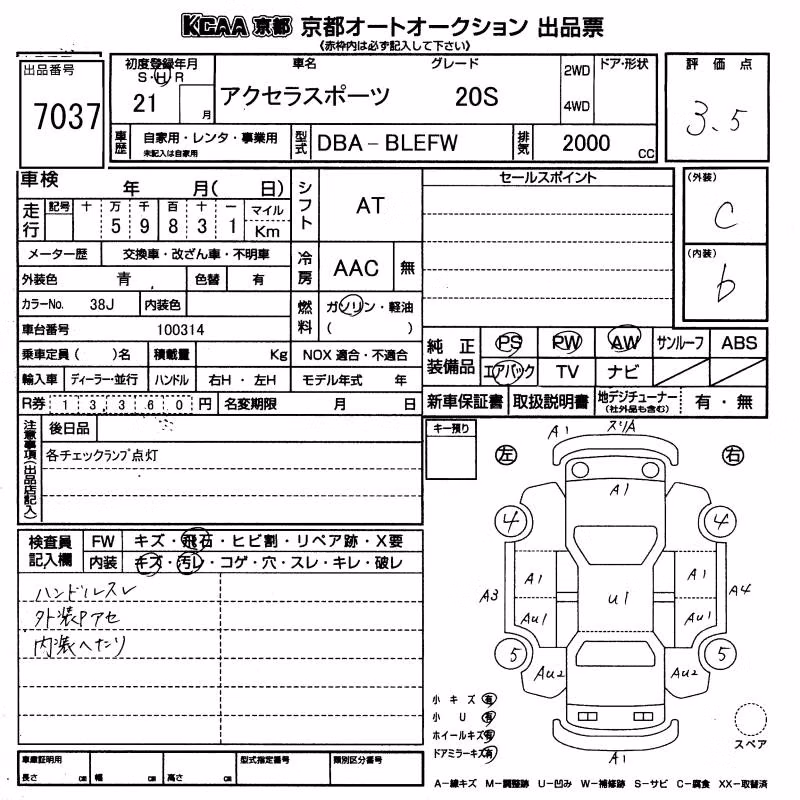 KCAA 京都 京都オートオークション 出品票
《赤枠内は必ず記入して下さい》
出品番号
7037
初度登録年月
S・H・R
21
月
車名
グレード
アクセラスポーツ
20S
2WD
4WD
ドア・形状
評価点
3.5
車歴
自家用・レンタ・事業用
未記入は自家用
型式
DBA-BLEFW
排気
2000
cc
車検
年
月(
日)
走行
記号
十
万
千
百
十
一
マイル
5
9
8
3
1
Km
シフト
AT
セールスポイント
(外装)
C
(内装)
b
メーター歴
交換車・改ざん車・不明車
冷房
AAC
無
外装色
青
色替
有
カラーNo.
38J
内装色
燃料
ガソリン・軽油
(
)
車台番号
100314
乗車定員(
)名
積載量
Kg
NOX 適合・不適合
輸入車
ディーラー・並行
ハンドル
右H・左H
モデル年式
年
R券
13,360
円
名変期限
月
日
純正装備品
PS
PW
AW
サンルーフ
ABS
エアバック
TV
ナビ
新車保証書
取扱説明書
地デジチューナー
(社外品も含む)
有・無
注意事項(出品店記入)
後日品
各チェックランプ点灯
キー預り
左
右
A1
スリA
A1
4
4
A1
A1
A3
A4
U1
AU1
AU1
5
5
AU2
AU2
A1
検査員記入欄
FW
キズ・飛石・ヒビ割・リペア跡・X要
内装
キズ・汚レ・コゲ・穴・スレ・キレ・破レ
ハンドルスレ
外装Pアセ
内装へたり
小キズ 有
小U 有
ホイールキズ 有
ドアミラーキズ 有
スペア
車庫証明用
長さ
cm
幅
cm
高さ
cm
型式指定番号
類別区分番号
A-線キズ M-調整跡 U-凹み W-補修跡 S-サビ C-腐食 XX-取替済